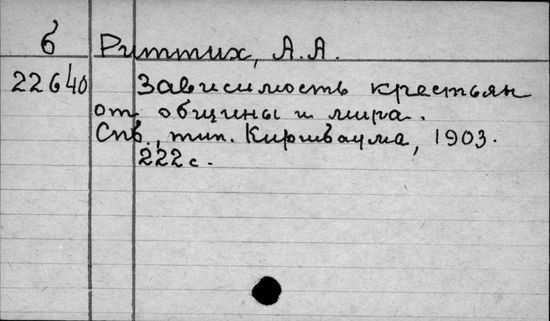 б Риттих, А.А.
22640 Зависимость крестьян
от общины и мира.
Спб., тип. Киршбаума, 1903.
222 с.